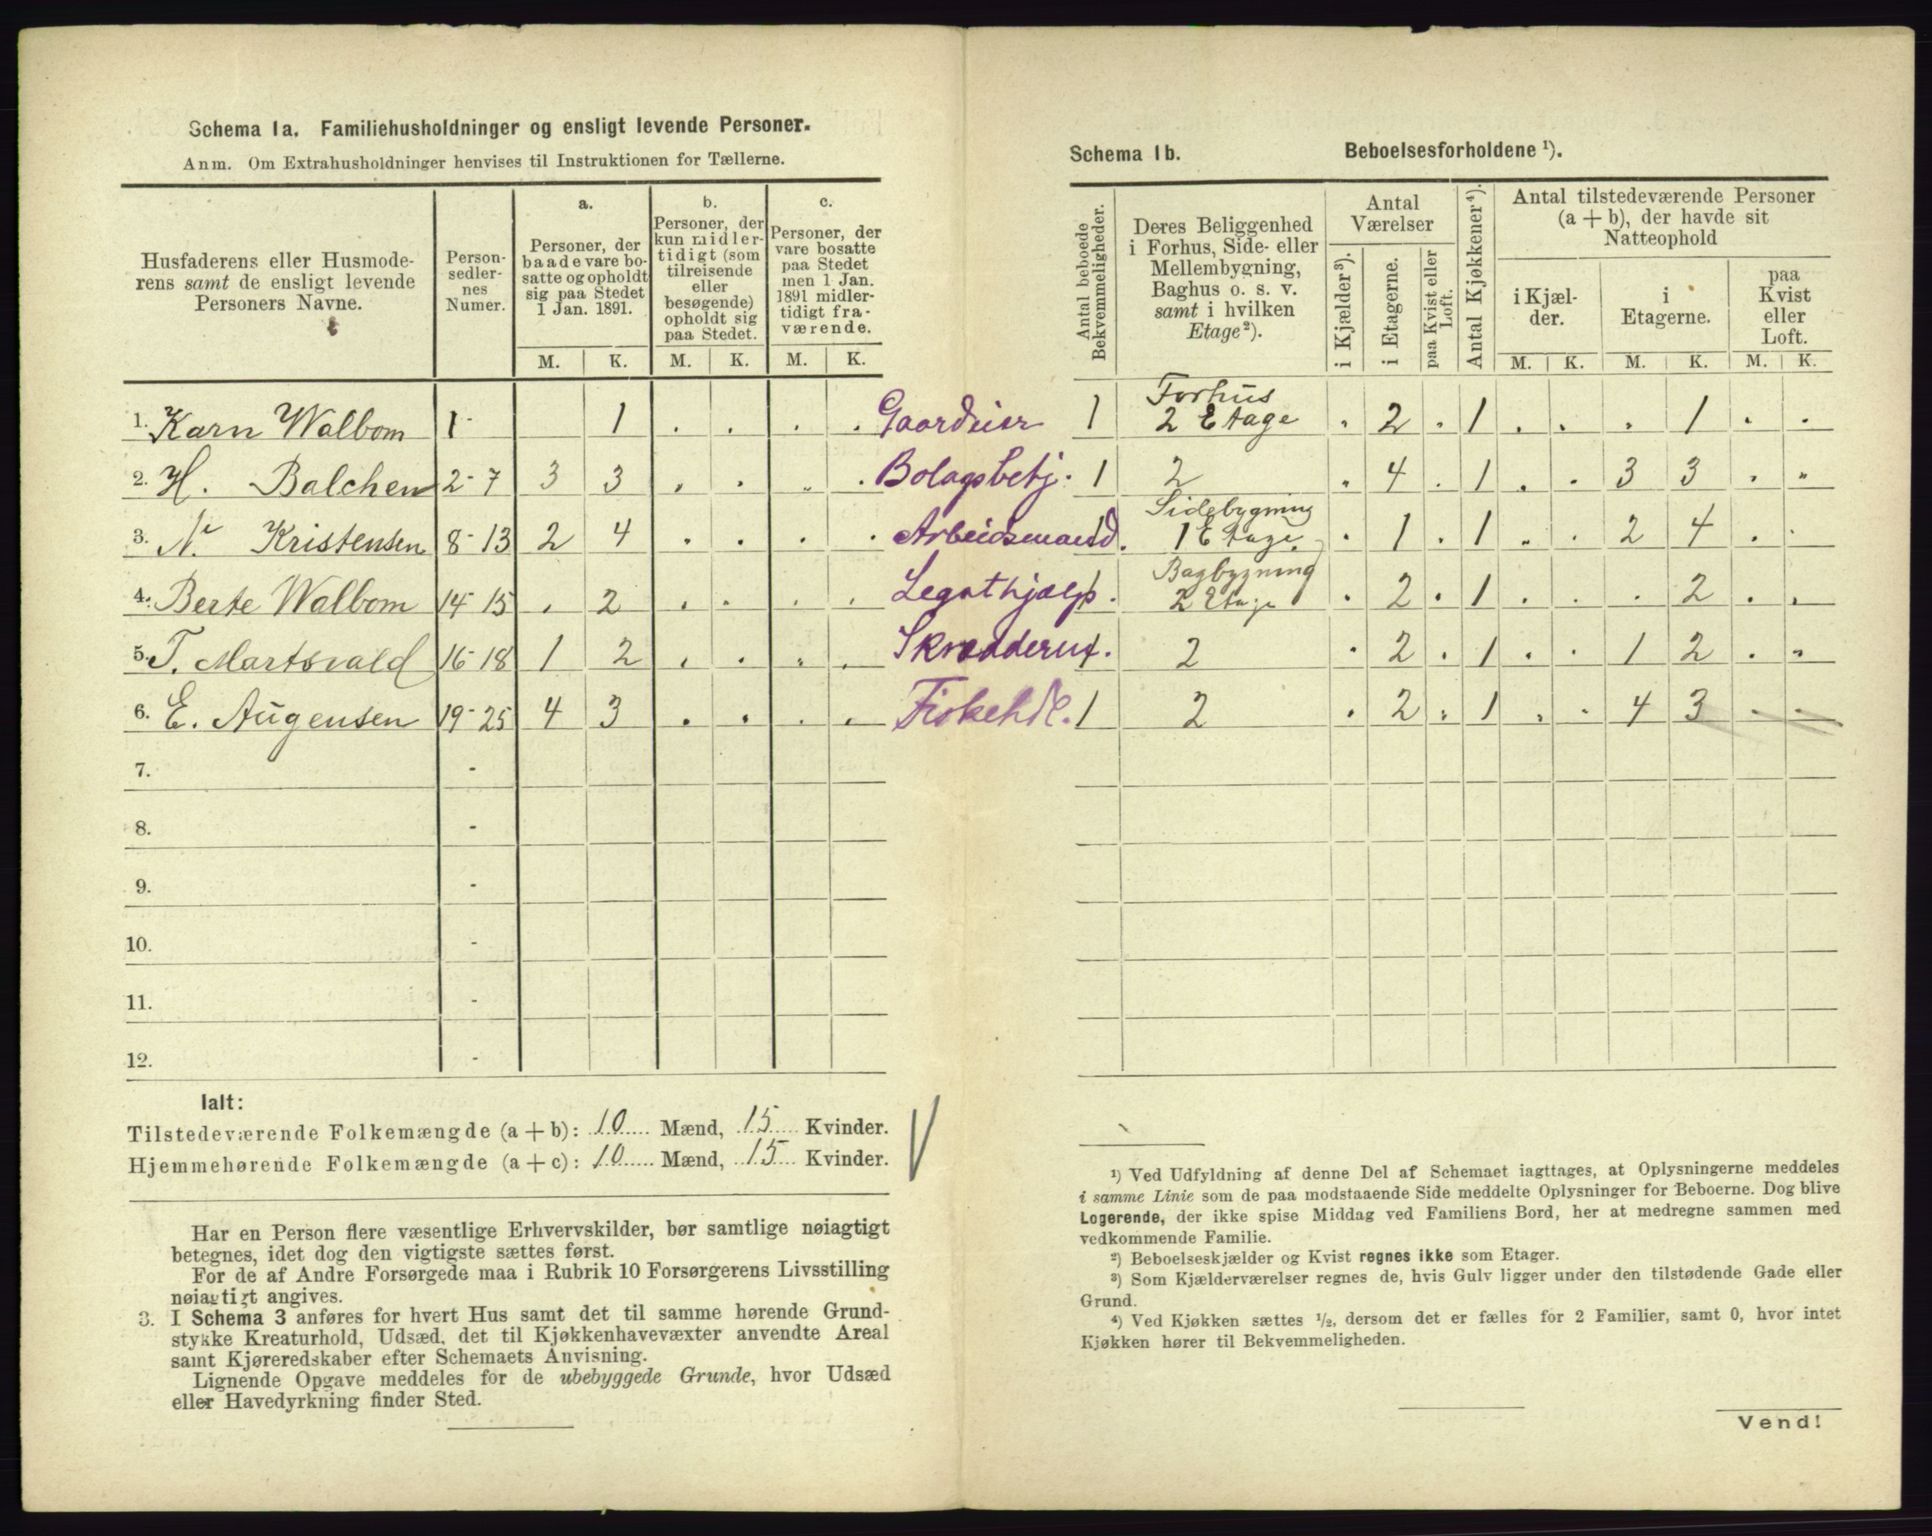 Schema 1a. Familiehusholdninger og ensligt levende Personer.
Anm. Om Extrahusholdninger henvises til Instruktionen for Tællerne.
Husfaderens eller Husmoderens samt de ensligt levende Personers Navne.
Personsedlernes Numer.
a. Personer, der baade vare bosatte og opholdt sig paa Stedet 1 Jan. 1891.
b. Personer, der kun midlertidigt (som tilreisende eller besøgende) opholdt sig paa Stedet.
c. Personer, der vare bosatte paa Stedet men 1 Jan. 1891 midlertidigt fraværende.
M. K. M. K. M. K.
1. Karn Walbom 1 - 1 . . . . Gaardeier
2. H. Balchen 2-7 3 3 . . . . Bolagsbetj.
3. N. Kristensen 8-13 2 4 . . . . Arbeidsmand.
4. Berte Walbom 14-15 . 2 . . . . Legathjælp.
5. T. Martsvald 16-18 1 2 . . . .
6. E. Augensen 19-25 4 3 . . . . Fiskehdl.
7. -
8. -
9. -
10. -
11. -
12. -
Ialt:
Tilstedeværende Folkemængde (a + b): 10 Mænd, 15 Kvinder.
Hjemmehørende Folkemængde (a + c): 10 Mænd, 15 Kvinder.
Har en Person flere væsentlige Erhvervskilder, bør samtlige nøiagtigt
betegnes, idet dog den vigtigste sættes først.
For de af Andre Forsørgede maa i Rubrik 10 Forsørgerens Livsstilling
nøiagtigt angives.
3. I Schema 3 anføres for hvert Hus samt det til samme hørende Grund-
stykke Kreaturhold, Udsæd, det til Kjøkkenhavevæxter anvendte Areal
samt Kjøreredskaber efter Schemaets Anvisning.
Lignende Opgave meddeles for de ubebyggede Grunde, hvor Udsæd
eller Havedyrkning finder Sted.
Schema 1b. Beboelsesforholdene ¹).
Antal beboede Bekvemmeligheder.
Deres Beliggenhed i Forhus, Side- eller Mellembygning, Baghus o. s. v. samt i hvilken Etage²).
Antal Værelser
i Kjælder³). i Etagerne. paa Kvist eller Loft.
Antal Kjøkkener⁴).
Antal tilstedeværende Personer (a + b), der havde sit Natteophold
i Kjælder. i Etagerne. paa Kvist eller Loft.
M. K. M. K. M. K.
1 Forhus 2 Etage . 2 . 1 . . . 1 . .
1 2 . 4 . 1 . . 3 3 . .
1 Sidebygning 1 Etage . 1 . 1 . . 2 4 . .
1 Bagbygning 2 Etage . 2 . 1 . . . 2 . .
1 2 . 2 . 1 . . 1 2 . .
1 2 . 2 . 1 . . 4 3 . .
¹) Ved Udfyldning af denne Del af Schemaet iagttages, at Oplysningerne meddeles
i samme Linie som de paa modstaaende Side meddelte Oplysninger for Beboerne. Dog blive
Logerende, der ikke spise Middag ved Familiens Bord, her at medregne sammen med
vedkommende Familie.
²) Beboelseskjælder og Kvist regnes ikke som Etager.
³) Som Kjælderværelser regnes de, hvis Gulv ligger under den tilstødende Gade eller
Grund.
⁴) Ved Kjøkken sættes ½, dersom det er fælles for 2 Familier, samt 0, hvor intet
Kjøkken hører til Bekvemmeligheden.
Vend!